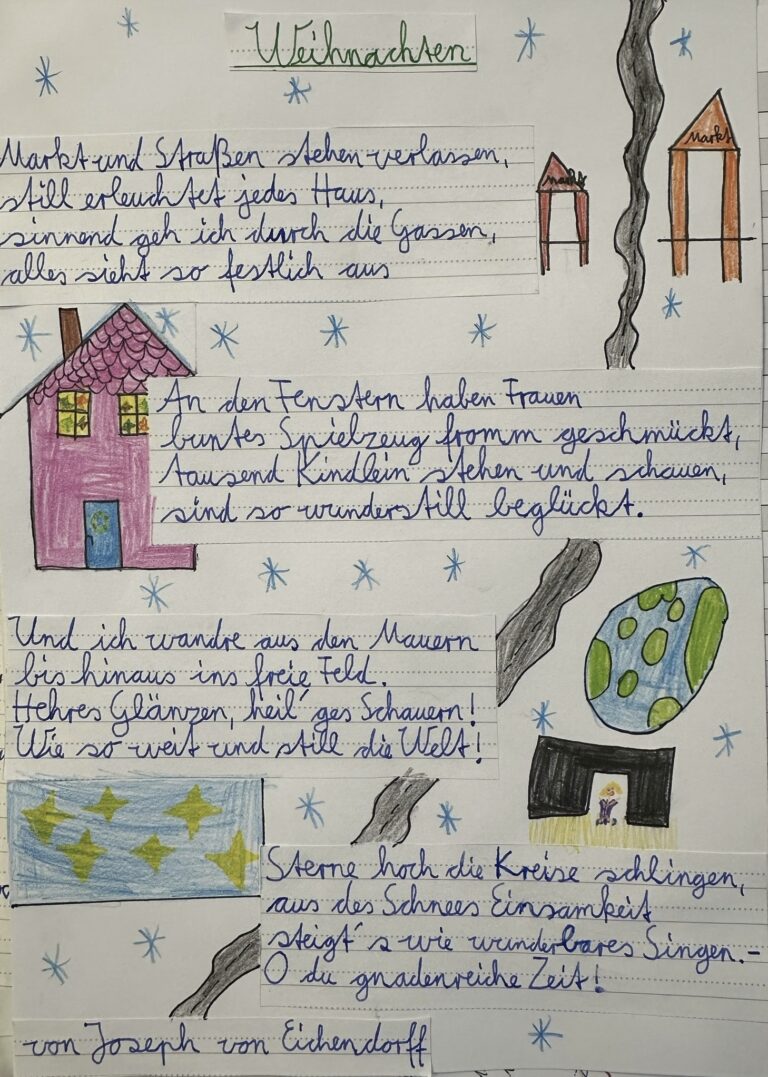 Weihnachten
Markt und Straßen stehen verlassen,
still erleuchtet jedes Haus,
sinnend geh ich durch die Gassen,
alles sieht so festlich aus
Markt
Markt
An den Fenstern haben Frauen
buntes Spielzeug fromm geschmückt,
tausend Kindlein stehen und schauen,
sind so wunderstill beglückt.
Und ich wandre aus den Mauern
bis hinaus ins freie Feld.
Hehres Glänzen, heil'ges Schauern!
Wie so weit und still die Welt!
Sterne hoch die Kreise schlingen,
aus des Schnees Einsamkeit
steigt's wie wunderbares Singen.-
O du gnadenreiche Zeit!
von Joseph von Eichendorff